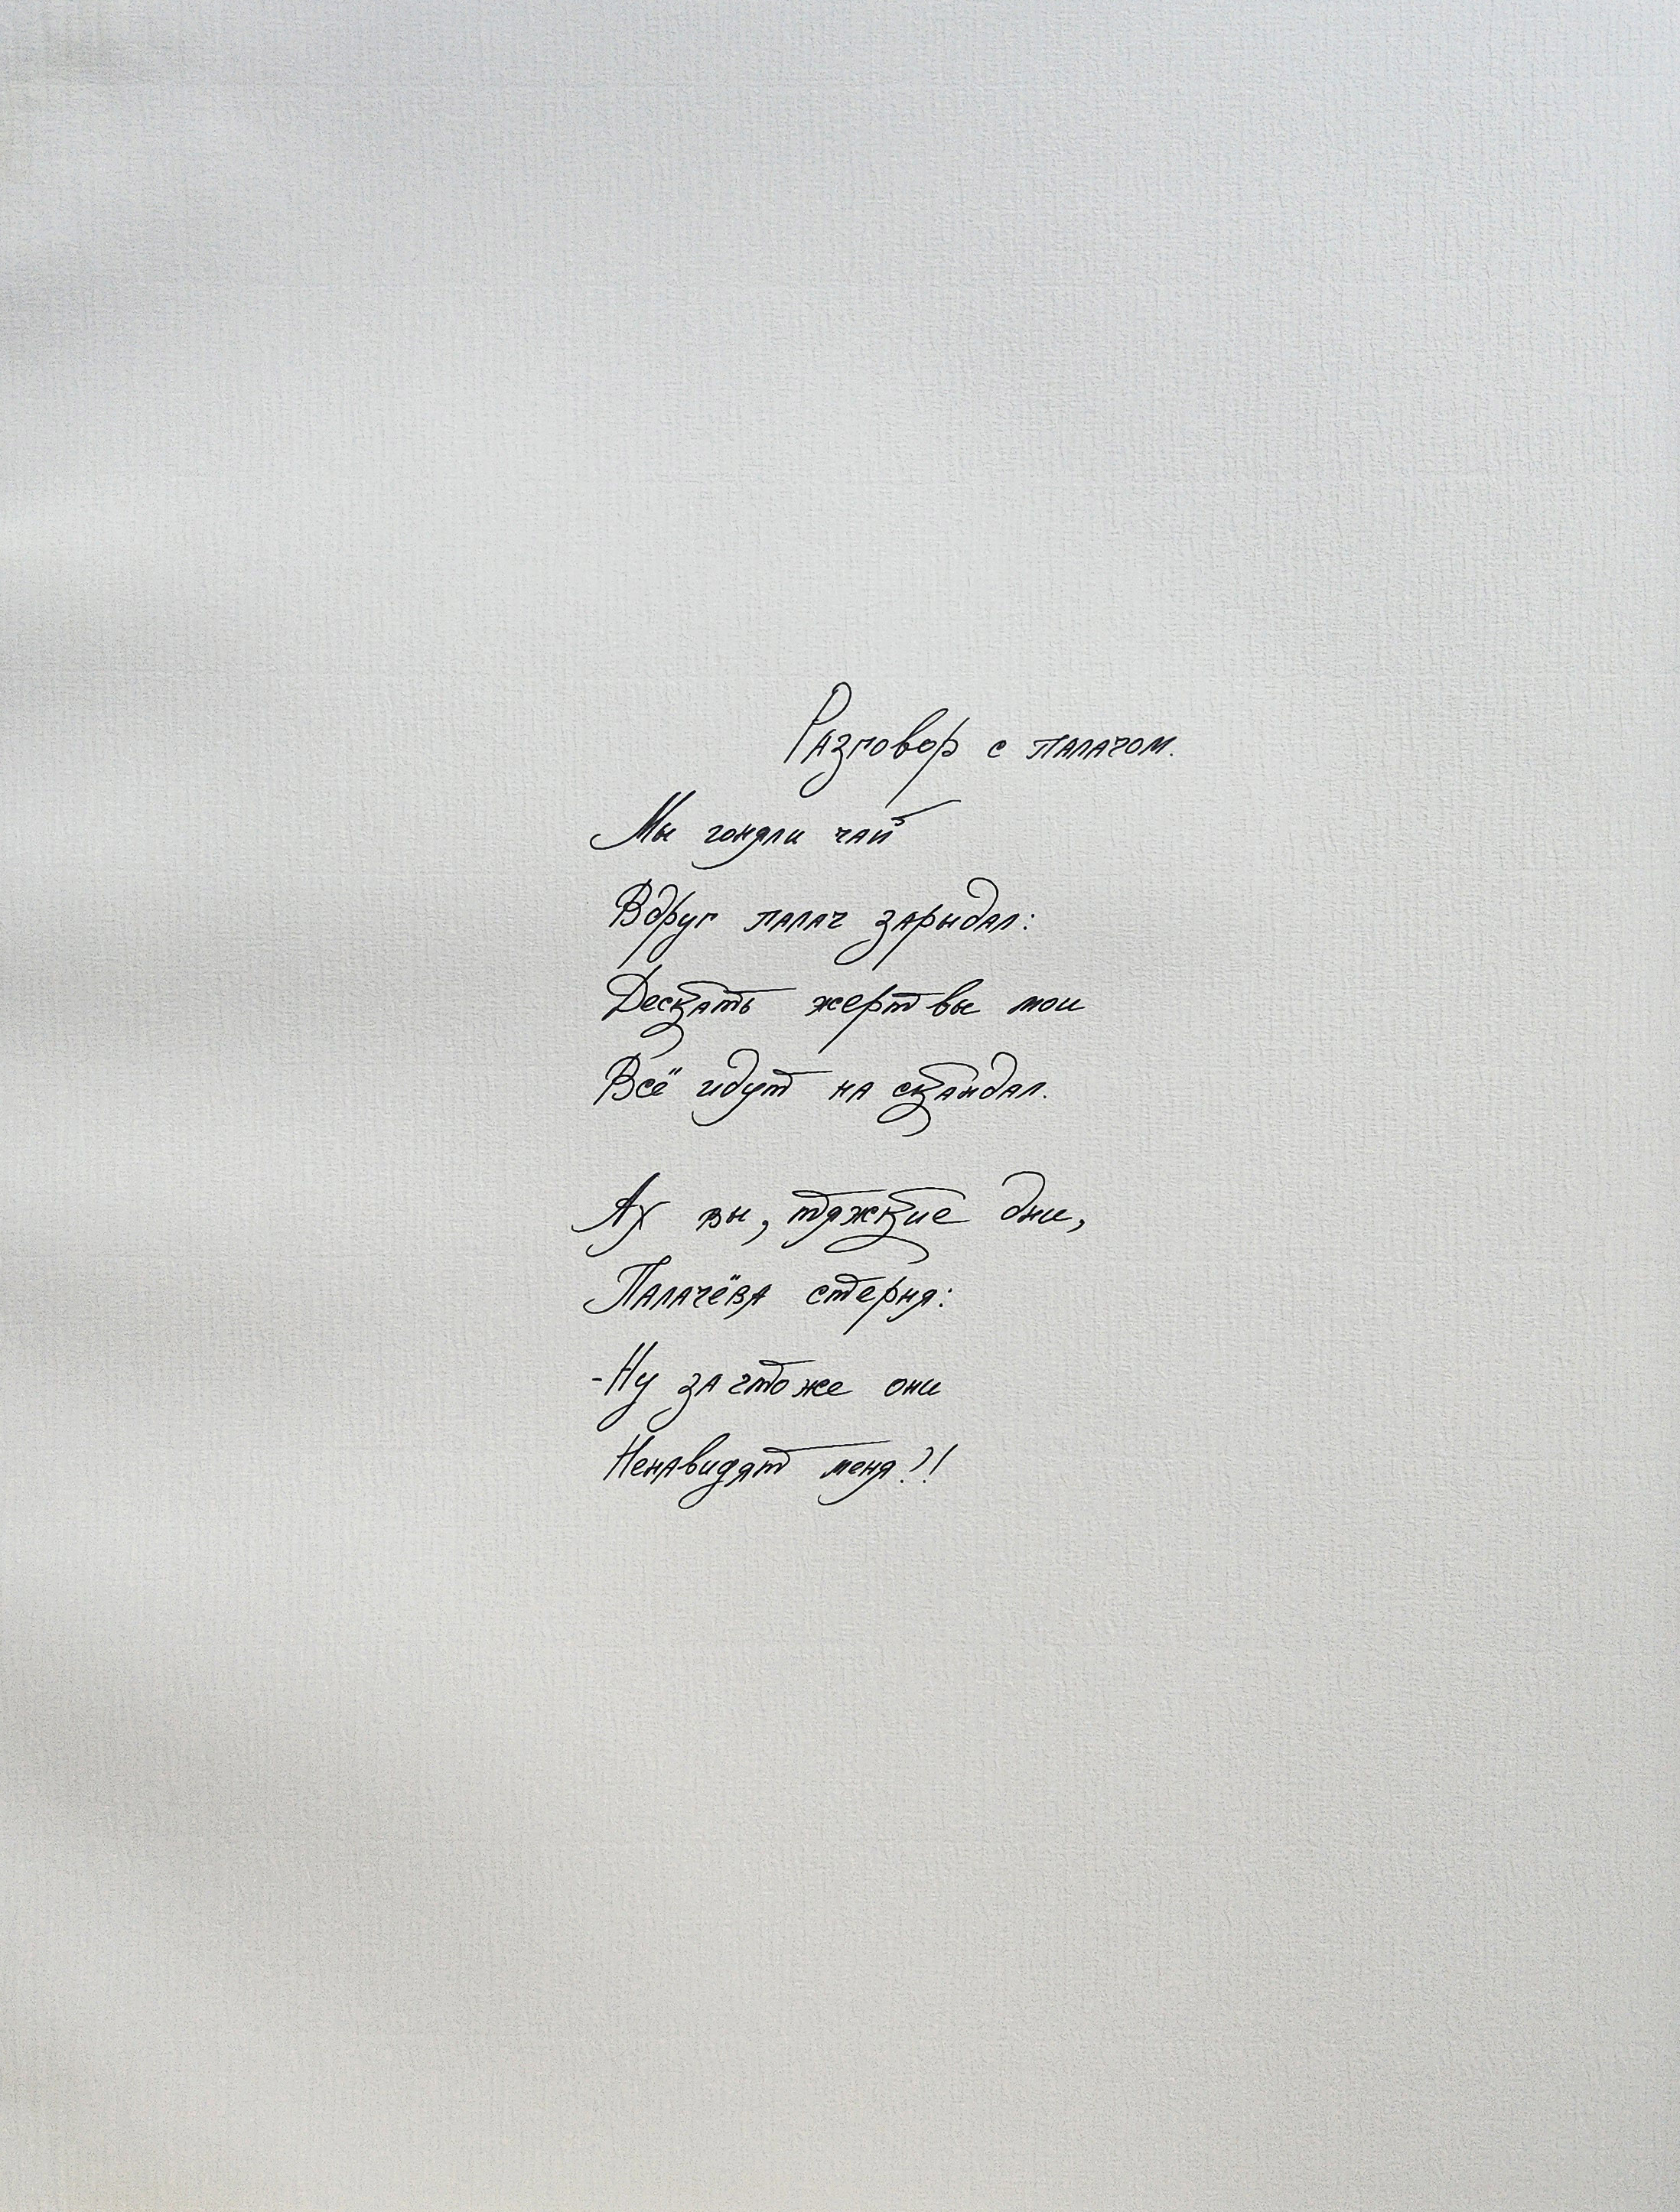 Разговор с палачом.
Мы гоняли чай
Вдруг палач зарыдал:
Дескать жертвы мои
Всё идут на скандал.
Ах вы, тяжкие дни,
Палачёва стерня:
-Ну за что же они
Ненавидят меня?!